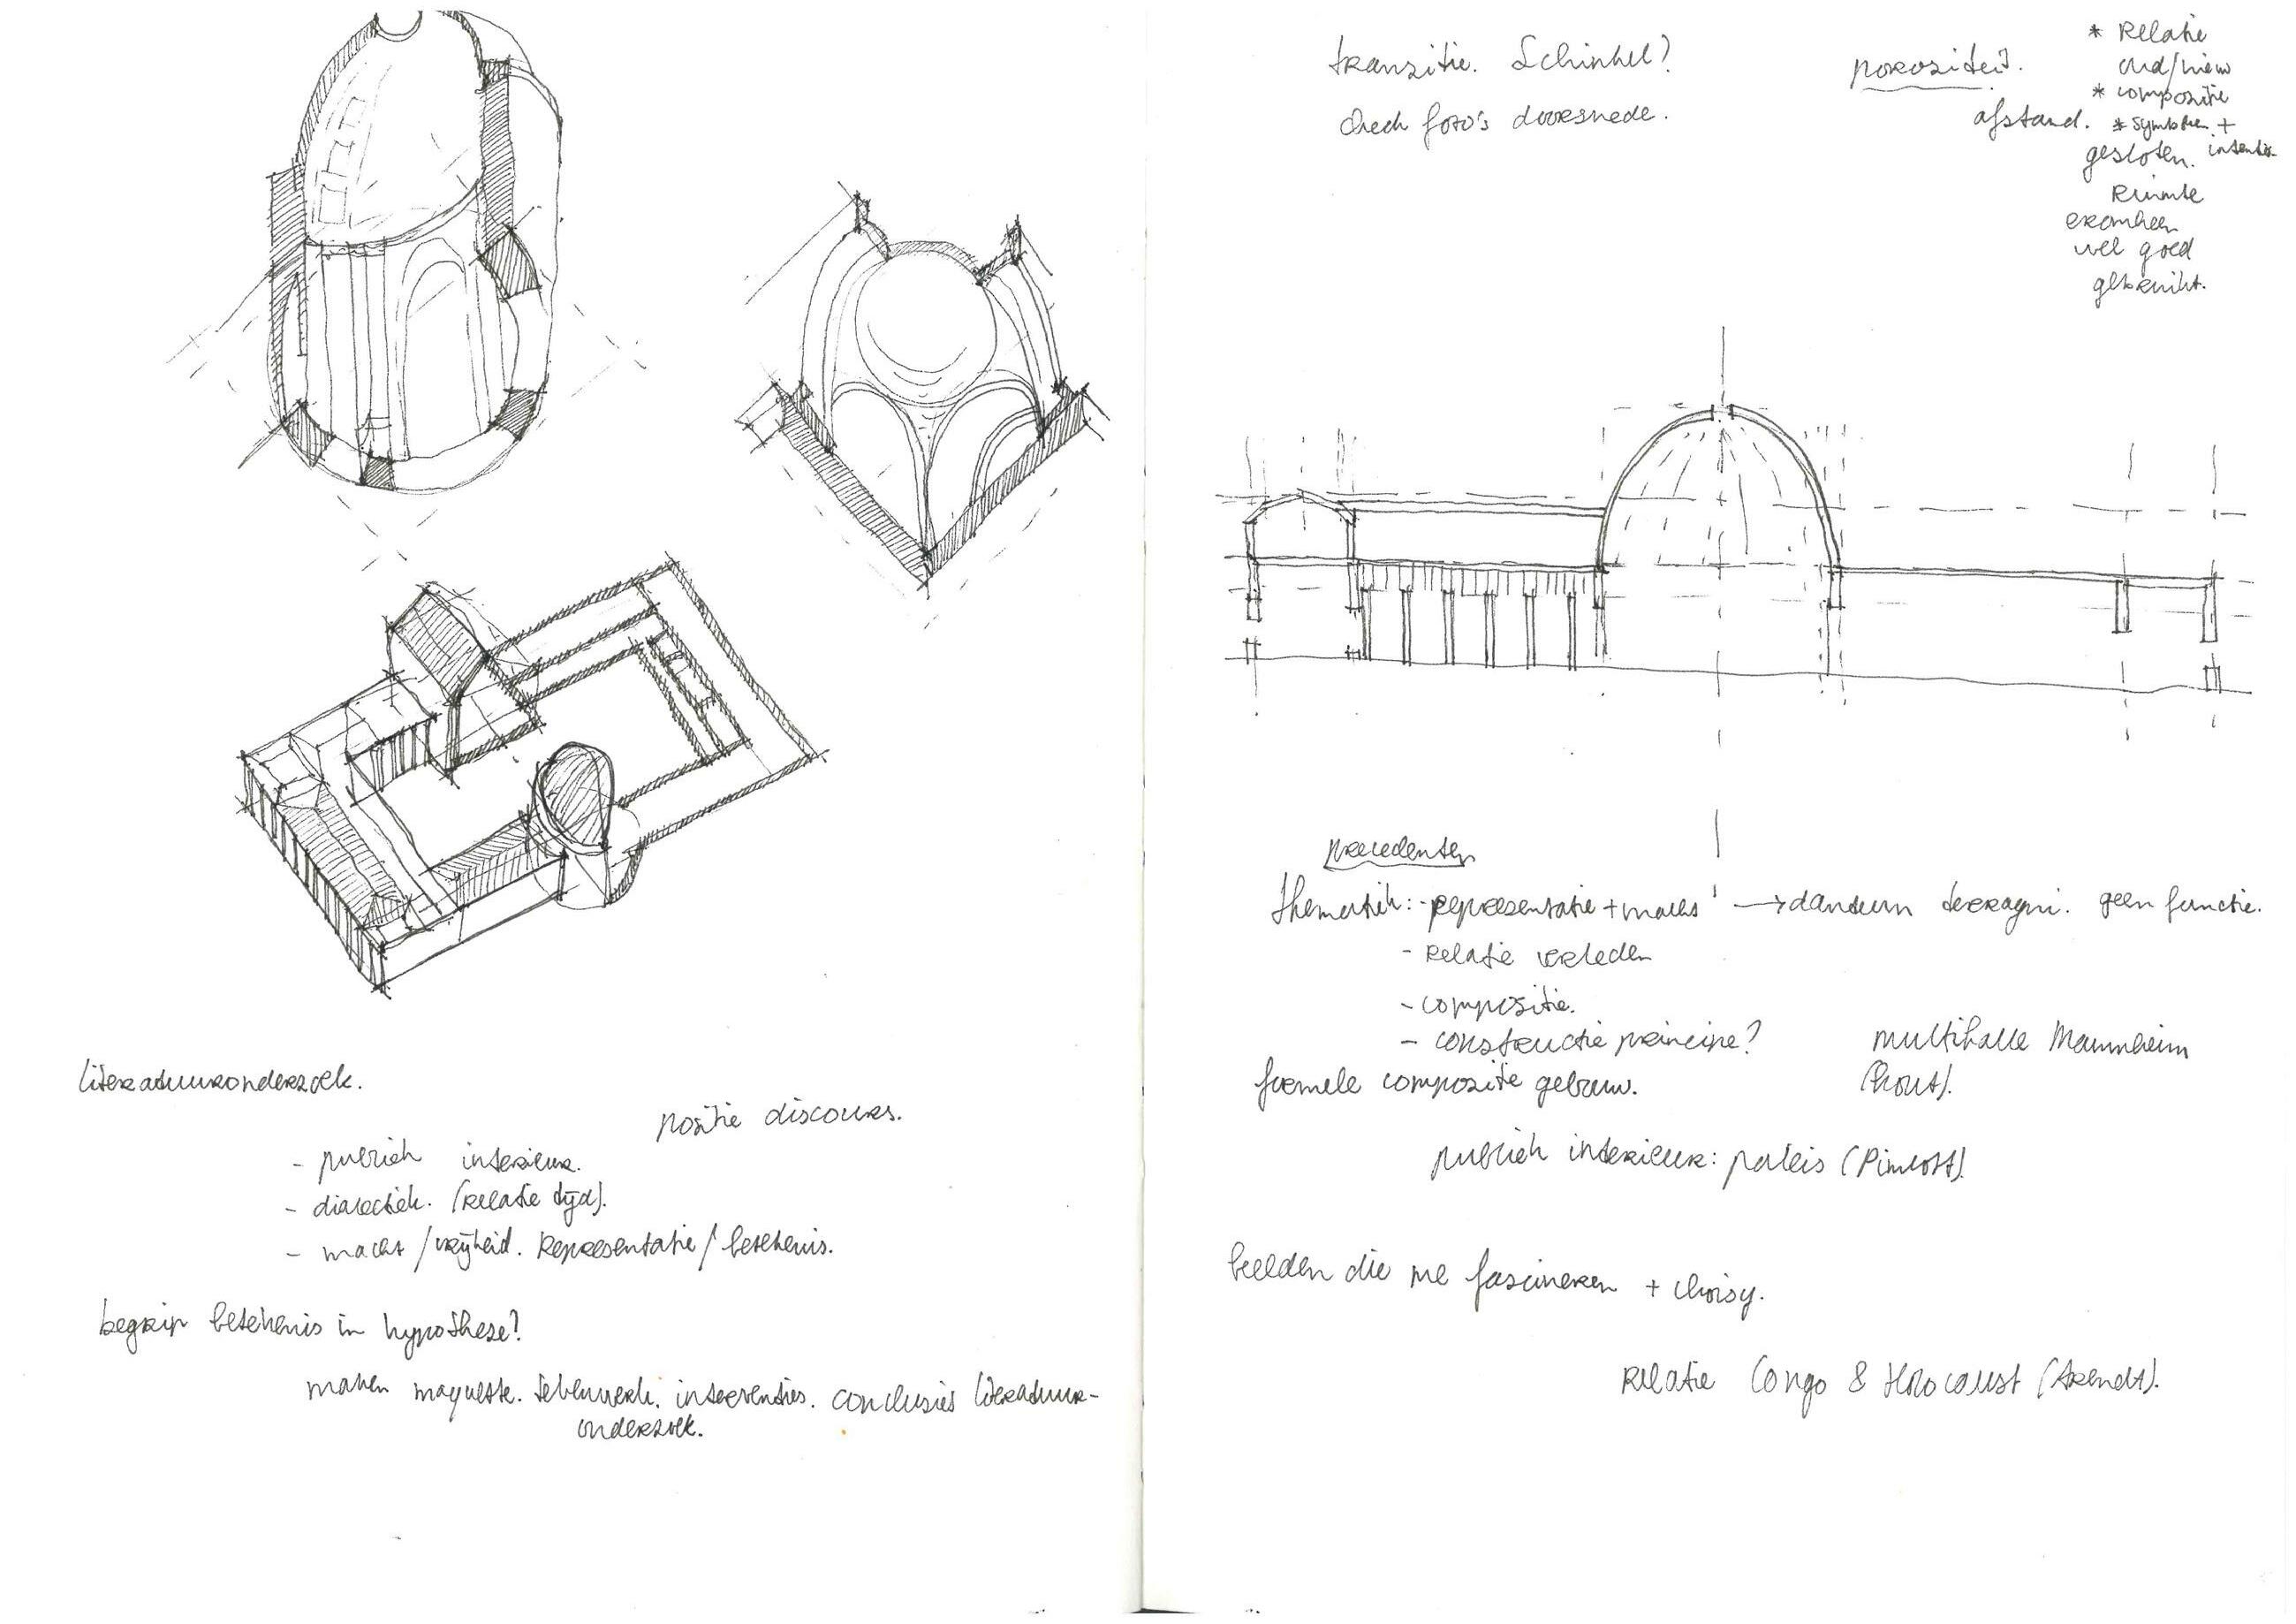 literatuuronderzoek.
positie discours.
- publiek interieur.
- dialectiek. (relatie tijd).
- macht / vrijheid. Representatie / betekenis.
begrip betekenis in hypothese?
maken maquette. tekenwerk. interventies. conclusies literatuur-
onderzoek.
transitie. Schinkel?
check foto's doorsnede.
porositeit.
* Relatie
oud/nieuw
* compositie
afstand. * symbolen +
gesloten.
Ruimte
eromheen
wel goed
gebruikt.
precedenten
thematiek: - representatie + macht → danteum terragni. geen functie.
- relatie verleden
- compositie.
- constructie principe?
multihalle Mannheim
(hout).
formele compositie gebouw.
publiek interieur: paleis (Pimlott).
beelden die me fascineren + choisy.
Relatie Congo & Holocaust (Arendt).